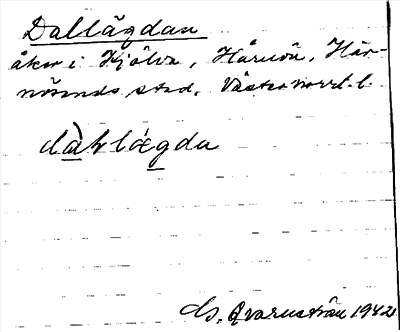 Dallägdan
åker i Kjölva, Hårnön, Här-
nösands stad. Västernorrl. l.
dàhlǽgda
G. Qvarnström 1942